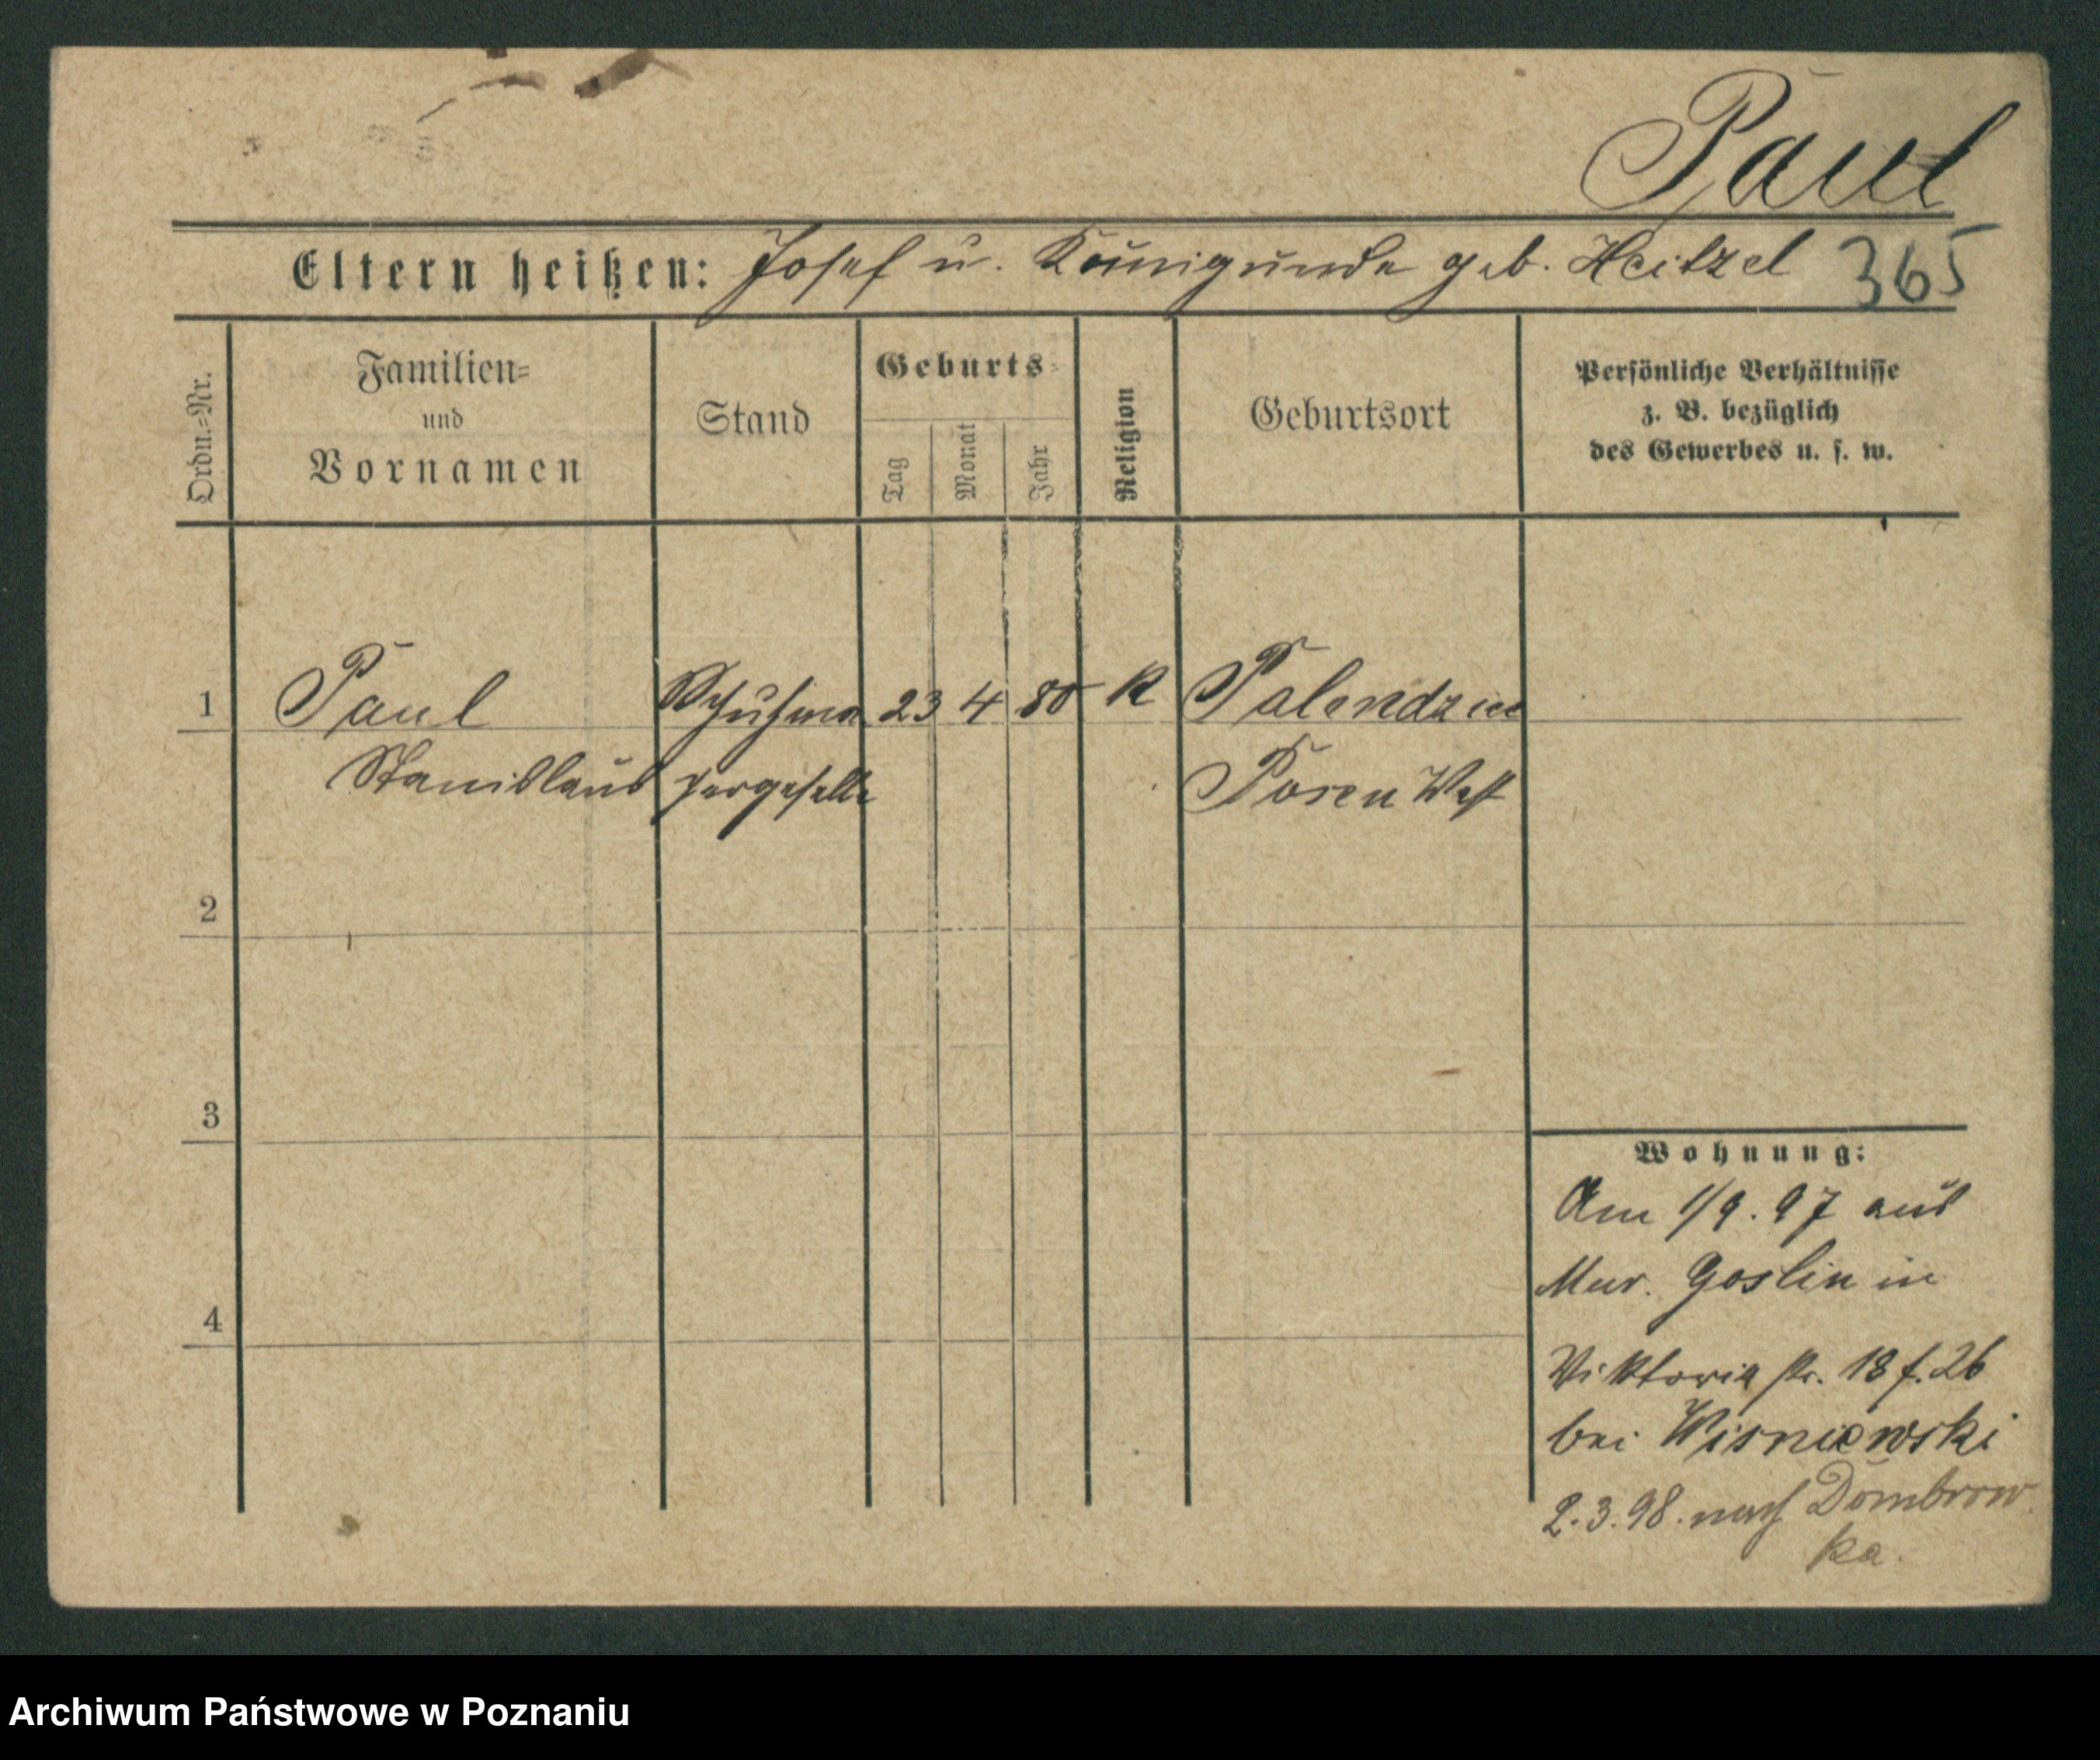 Paul
Eltern heißen: Josef u. Kunigunde geb. Heitzel 365
Ordn.=Nr.
Familien=
und
Vornamen
Stand
Geburts=
Tag
Monat
Jahr
Religion
Geburtsort
Persönliche Verhältnisse
z. B. bezüglich
des Gewerbes u. s. w.
1 Paul Schuhma 23 4 80 K Palendzie
Stanislaus chergeselle Posen West
2
3
4
Wohnung:
Am 1/9. 97 aus
Mur. Goslin in
Viktoria str. 18 f. 26
bei Wisniewski
2.3.98. nach Dombrow
ka.
Archiwum Państwowe w Poznaniu